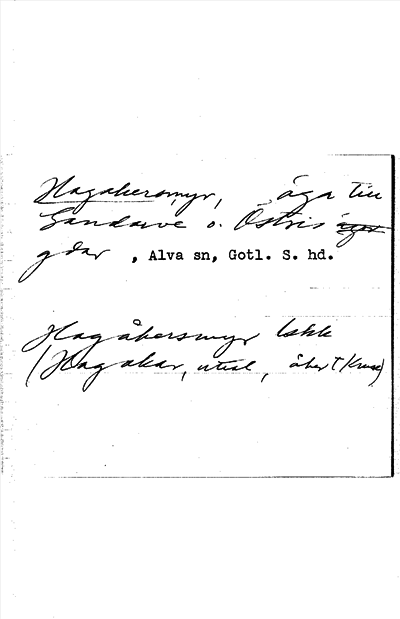 Hagakersmyr, äga till
Gandarve o. Östris ägor
gdar, Alva sn, Gotl. S. hd.
Hagåkersmyr lskk
(Hagakar, uttal, åker T Kruse)